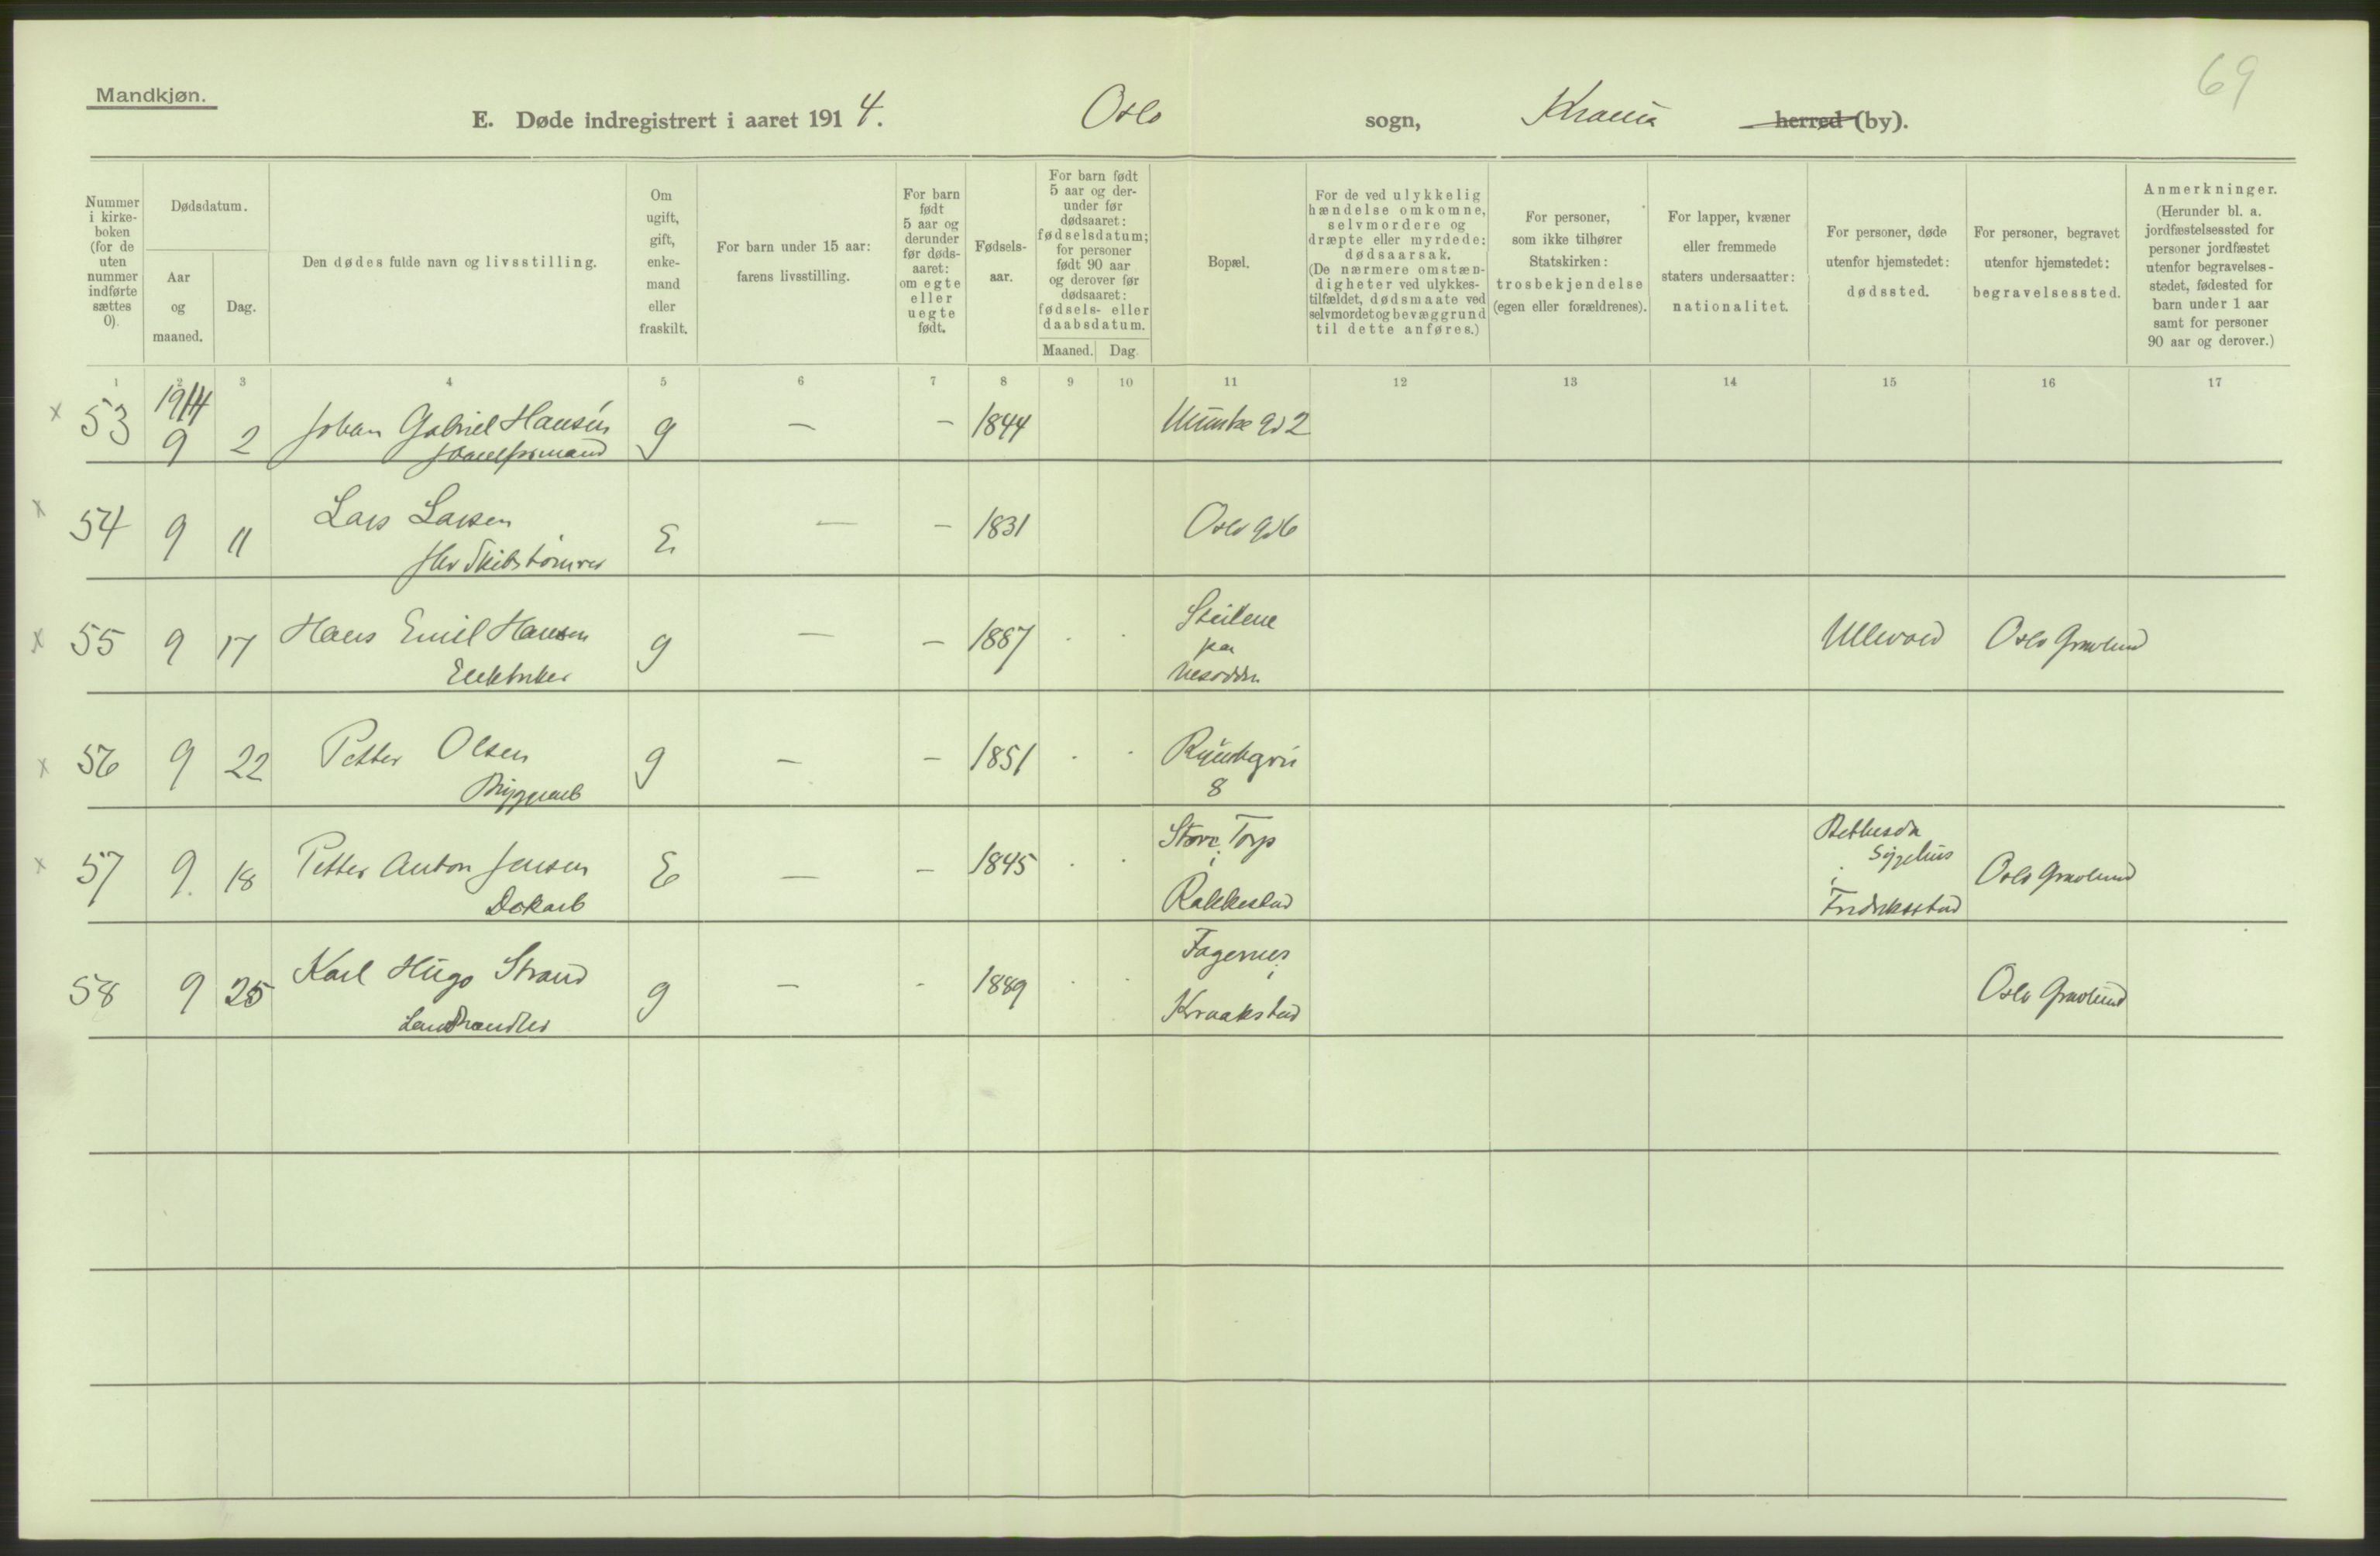 69
Mandkjøn.
E. Døde indregistrert i aaret 1914. Oslo sogn, Krania herred (by).
Nummer i kirke- boken (for de uten nummer indførte sættes 0).
Dødsdatum.
Aar og maaned.
Dag.
Den dødes fulde navn og livsstilling.
Om ugift, gift, enke- mand eller fraskilt.
For barn under 15 aar: farens livsstilling.
For barn født 5 aar og derunder før døds- aaret: om egte eller uegte født.
Fødsels- aar.
For barn født 5 aar og der- under før dødsaaret: fødselsdatum; for personer født 90 aar og derover før dødsaaret: fødsels- eller daabsdatum.
Maaned. Dag.
Bopæl.
For de ved ulykkelig hændelse omkomne, selvmordere og dræpte eller myrdede: dødsaarsak. (De nærmere omstæn- digheter ved ulykkes- tilfældet, dødsmaate ved selvmordet og bevæggrund til dette anføres.)
For personer, som ikke tilhører Statskirken: trosbekjendelse (egen eller forældrenes).
For lapper, kvæner eller fremmede staters undersaatter: nationalitet.
For personer, døde utenfor hjemstedet: dødssted.
For personer, begravet utenfor hjemstedet: begravelsessted.
Anmerkninger. (Herunder bl. a. jordfæstelsessted for personer jordfæstet utenfor begravelses- stedet, fødested for barn under 1 aar samt for personer 90 aar og derover.)
1 2 3 4 5 6 7 8 9 10 11 12 13 14 15 16 17
x 53 1914 9 2 Johan Gabriel Hansen g — — 1844 Munke gd 2
x 54 9 11 Lars Larsen E — — 1831 Oslo gd 6
fhv Skibstømrer
x 55 9 17 Hans Emil Hansen g — — 1887 Steilene paa Nesodden Ullevold Oslo Gravlund
Elektriker
x 56 9 22 Petter Olsen g — — 1851 8
Bryggearb
x 57 9. 18 Petter Anton Jensen E — — 1845 Store Torp i Rakkestad Bethesda Sygehus i Fredriksstad Oslo Gravlund
Dokarb
58 9 25 Karl Hugo Strand g — - 1889 Fagernes i Kraakstad Oslo Gravlund
Landhandler